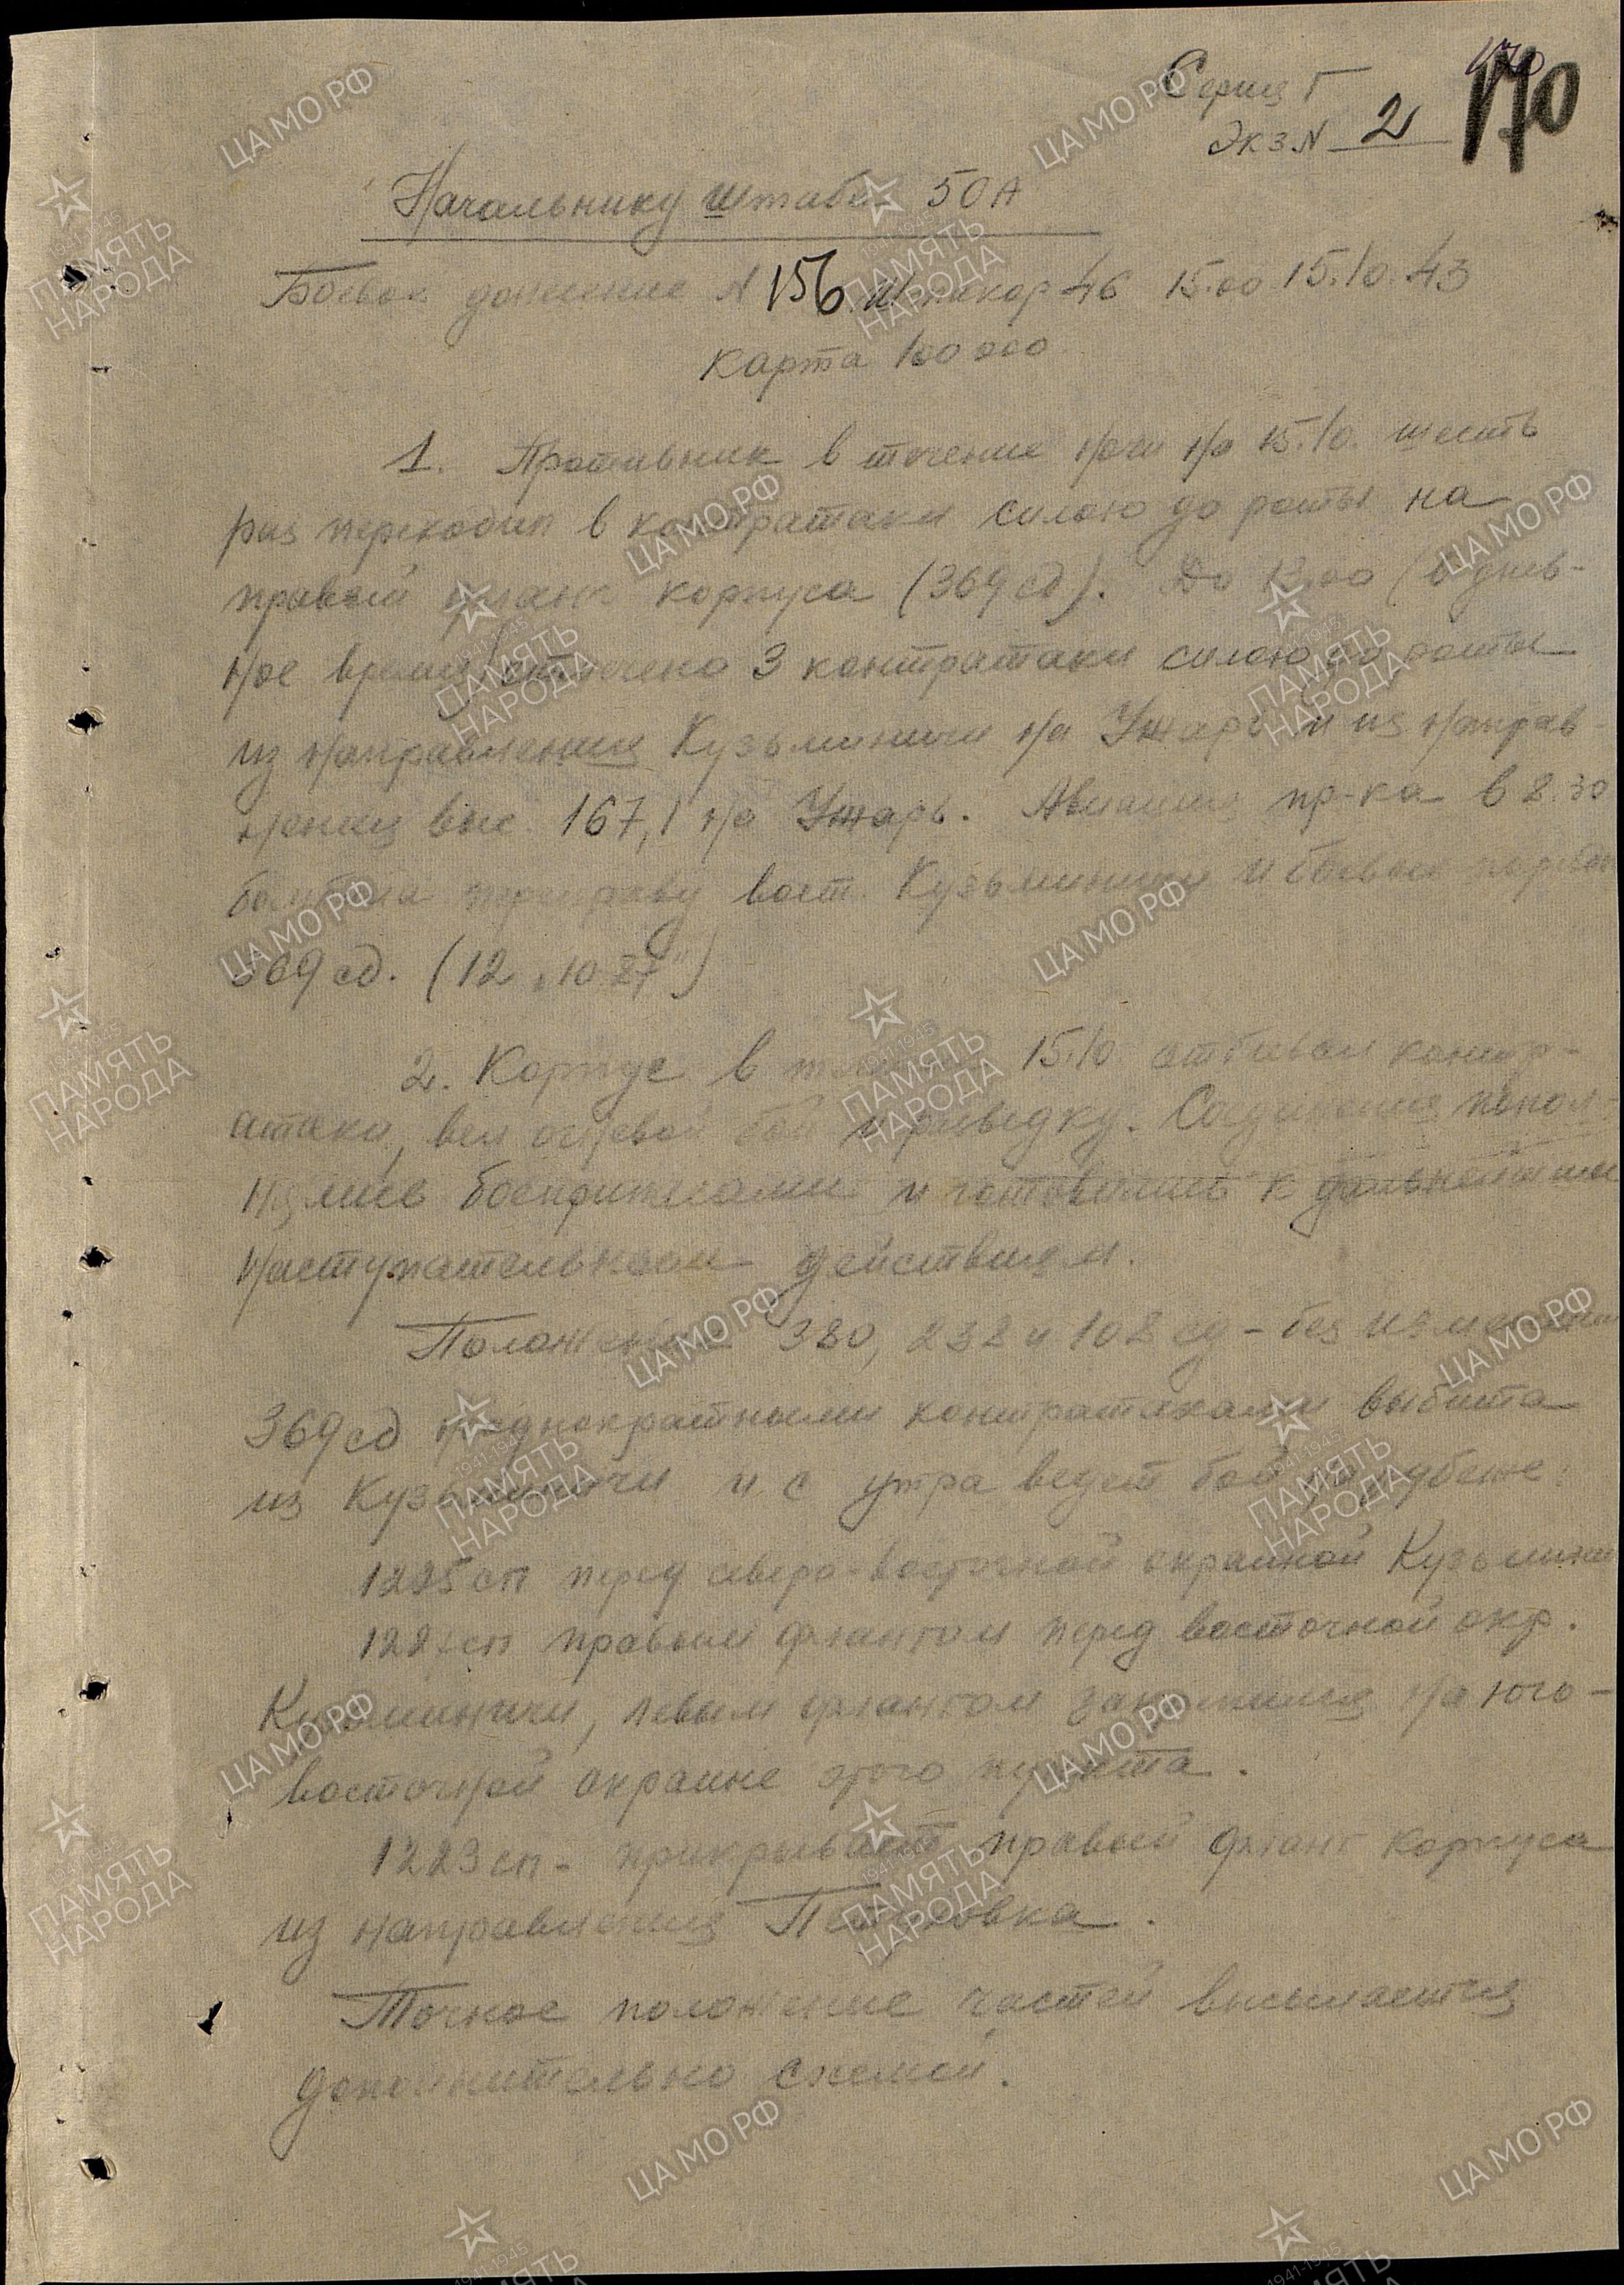 170
Серия Г
Экз. N 2 170
Начальнику штаба 50А
Боевое донесение N 156 штакор 46 15.00 15.10.43
Карта 100000
1. Противник в течение ночи на 15.10. шесть
раз переходил в контратаки силою до роты на
правый фланг корпуса (369 сд). До 12.00 (в днев-
ное время) отмечено 3 контратаки силою до роты
из направления Кузьминичи на Ухарь и из направ-
ления выс. 167,1 на Ухарь. Авиация пр-ка в 8.30
бомбила переправу вост. Кузьминичи и боевые порядки
369 сд. (12 Ю-87")
2. Корпус в течение 15.10 отбивал контр-
атаки, вел огневой бой и разведку. Соединения попол-
нялись боеприпасами и готовились к дальнейшим
наступательным действиям.
Положение 380, 238 и 108 сд - без изменений
369 сд неоднократными контратаками выбита
из Кузьминичи и с утра ведет бой на рубеже:
1225 сп перед северо-восточной окраиной Кузьминичи
1221 сп правым флангом перед восточной окр.
Кузьминичи, левым флангом закрепился на юго-
восточной окраине этого пункта.
1223 сп - прикрывает правый фланг корпуса
из направления Петуховка.
Точное положение частей высылается
дополнительно схемой.